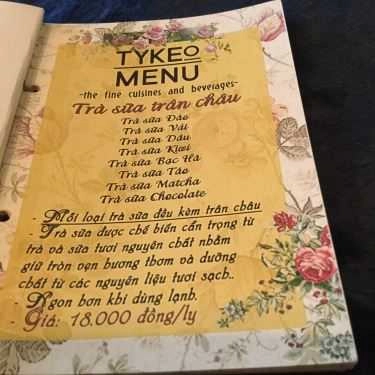 TYKEO
MENU
~the fine cuisines and beverages~
Trà sữa trân châu
Trà sữa Đào
Trà sữa Vải
Trà sữa Dâu
Trà sữa Kiwi
Trà sữa Bạc Hà
Trà sữa Táo
Trà sữa Matcha
Trà sữa Chocolate
- Mỗi loại trà sữa đều kèm trân châu
- Trà sữa được chế biến cẩn trọng từ
trà và sữa tươi nguyên chất nhằm
giữ trọn vẹn hương thơm và dưỡng
chất từ các nguyên liệu tươi sạch..
- Ngon hơn khi dùng lạnh.
Giá: 18.000 đồng/ly